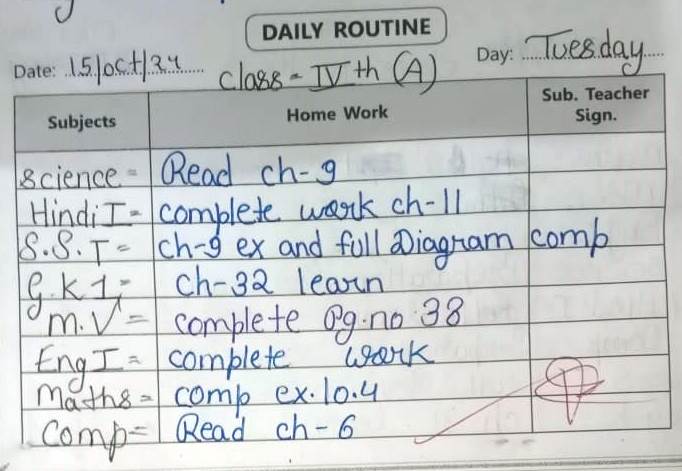 DAILY ROUTINE
Date: 15/oct/24 Class - IVth (A) Day: Tuesday
Subjects Home Work Sub. Teacher Sign.
Science = Read ch-9
Hindi I = complete work ch-11
S.S.T = ch-9 ex and full Diagram comp
G.K 1 = ch-32 learn
M.V = complete Pg.no 38
Eng I = complete work
Maths = comp ex.10.4
Comp = Read ch-6